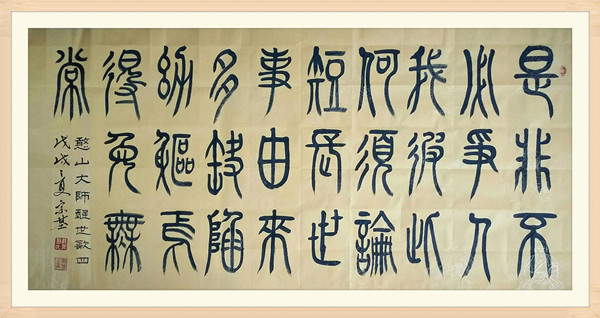 是非不
必爭人
我彼此
何須論
短長世
事由來
多缺陷
幻軀焉
得免無
常
憨山大師醒世歌四
戊戌之夏宗基